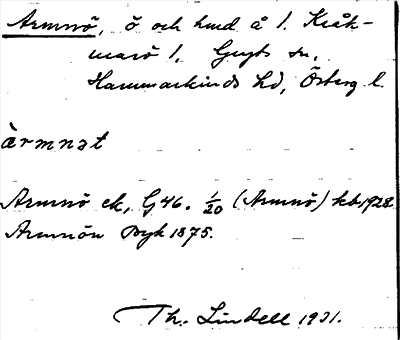 Armnö, ö och hmd å 1. Kråk-
marö 1, Gryts sn,
Hammarkinds hd, Österg. l.
àrmnət
Armnö ek, G 46. 1/20 (Armnö) kb. 1928.
Armnön Byk 1875.
Th. Lindell 1931.